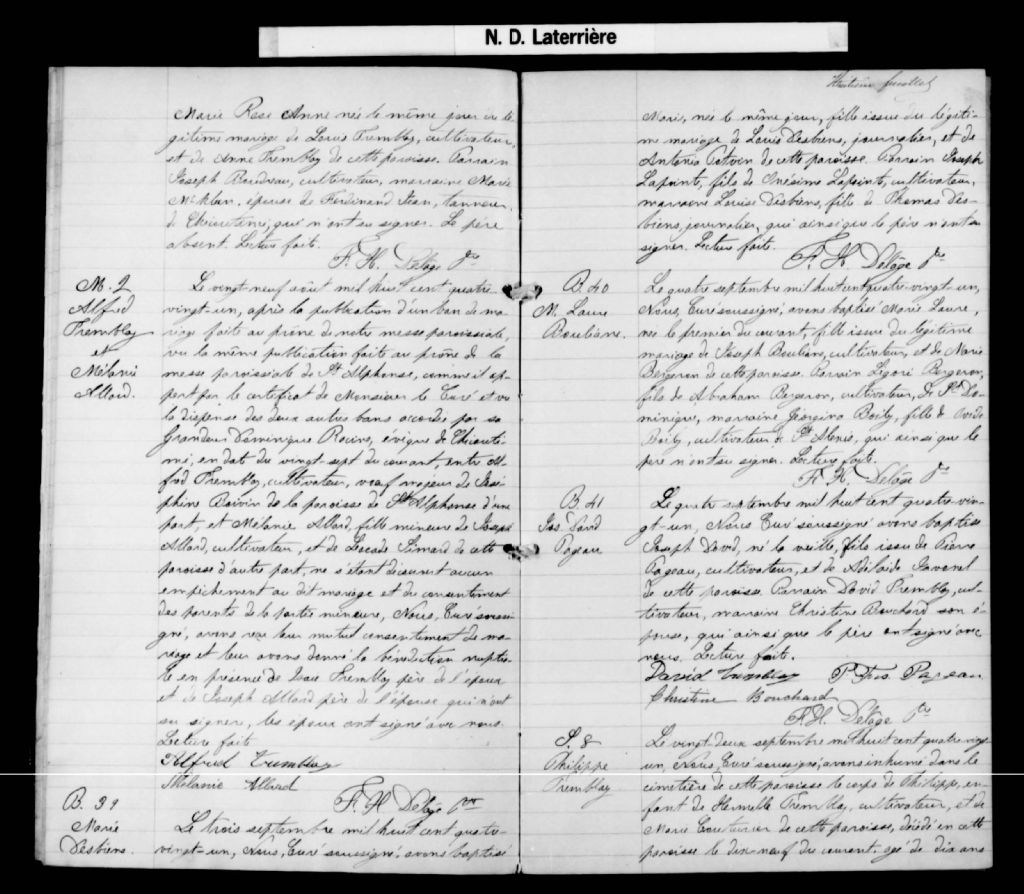 N. D. Laterrière
Marie Rose Anne née le même jour du lé
gitime mariage de Louis Tremblay, cultivateur,
et de Anne Tremblay de cette paroisse. Parrain
Joseph Boudreau, cultivateur, marraine Marie
épouse de Ferdinand Jean, tanneur,
de Chicoutimi, qui n'ont su signer. Le père
absent. Lecture faite.
F. H. Delâge Ptre
M. 2
Alfred
Tremblay
et
Mélanie
Allard.
Le vingt neuf août mil huit cent quatre-
vingt-un, après la publication d'un ban de ma-
riage faite au prône de notre messe paroissiale,
vu la même publication faite au prône de la
messe paroissiale de St Alphonse, comme il ap-
pert par le certificat de Monsieur le Curé et vu
la dispense des deux autres bans accordée par sa
Grandeur Dominique Racine, évêque de Chicouti-
mi, en date du vingt-sept du courant, entre Al-
fred Tremblay, cultivateur, veuf majeur de José-
phine Boivin de la paroisse de St Alphonse d'une
part, et Mélanie Allard, fille mineure de Joseph
Allard, cultivateur, et de Locade Simard de cette
paroisse d'autre part, ne s'étant découvert aucun
empêchement au dit mariage et du consentement
des parents de la partie mineure, Nous, Curé soussi-
gné, avons reçu leur mutuel consentement de ma-
riage et leur avons donné la bénédiction nuptia-
le en présence de Tremblay père de l'époux
et de Joseph Allard père de l'épouse qui n'ont
su signer, les époux ont signé avec nous.
Lecture faite
Alfred Tremblay
Mélanie Allard
F. H Delâge Ptre
B. 39
Marie
Desbiens.
Le trois septembre mil huit cent quatre-
vingt-un, Nous, Curé soussigné, avons baptisé
feuillet
Marie, née le même jour, fille issue du légiti-
me mariage de Louis Desbiens, journalier, et de
Antonia Potvin de cette paroisse. Parrain Joseph
Lapointe, fils de Onésime Lapointe, cultivateur,
marraine Louise Desbiens, fille de Thomas Des-
biens, journalier, qui ainsi que le père n'ont su
signer. Lecture faite.
F. H. Delâge Ptre
B. 40
M. Laure
Bouliane.
Le quatre septembre mil huit cent quatre-vingt-un,
Nous, Curé soussigné, avons baptisé Marie Laure,
née le premier du courant, fille issue du légitime
mariage de Joseph Bouliane, cultivateur, et de Marie
Bergeron de cette paroisse. Parrain Ligori Bergeron,
fils de Abraham Bergeron, cultivateur, de St Do-
minique, marraine Georgina Boily, fille de Ovide
Boily, cultivateur de St Alexis, qui ainsi que le
père n'ont su signer. Lecture faite.
F. H. Delâge Ptre
B. 41
Jos. David
Pageau
Le quatre septembre mil huit cent quatre-vin-
gt-un, Nous Curé soussigné avons baptisé
Joseph David, né la veille, fils issu de Pierre
Pageau, cultivateur, et de Adélaïde Gravel
de cette paroisse. Parrain David Tremblay, cul-
tivateur, marraine Christine Bouchard son é-
pouse, qui ainsi que le père ont signé avec
nous. Lecture faite.
David Tremblay P. Frs. Pageau
Christine Bouchard
F. H. Delâge Ptre
S. 8
Philippe
Tremblay
Le vingt-deux septembre mil huit cent quatre vingt-
un, Nous, Curé soussigné, avons inhumé dans le
cimetière de cette paroisse le corps de Philippe, en-
fant de Tremblay, cultivateur, et de
Marie Couturier de cette paroisse, décédé en cette
paroisse le dix-neuf du courant, agé de dix ans